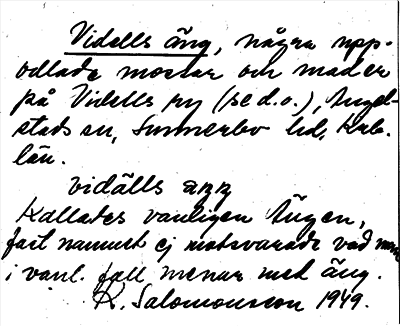 Vidells äng, några upp-
odlade mossar och mader
på Vidells ry (se d.o.), Ängel-
stads sn, Sunnerbo hd, Krb.
län.
vidälls ärr
Kallades vanligen Ängen,
fast namnet ej motsvarade vad man
i vanl. fall menar med äng.
R. Salomonsson 1949.